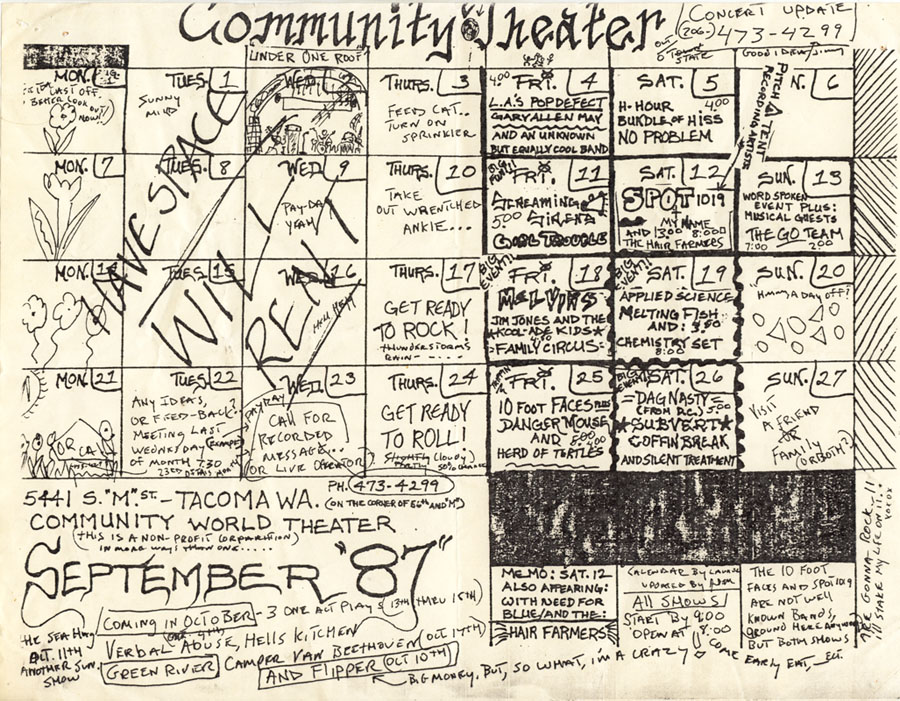 Community Theater
CONCERT UPDATE
(206) 473-4299
UNDER ONE ROOF
OUT O' TOWN STATE
GOOD IDEA/Jimmy
MON.
BETTER LOOK OUT)
NOW!
TUES. 1
SUNNY
MILD
WED.
THURS. 3
FEED CAT..
TURN ON
SPRINKLER
4.00 FRI. 4
L.A.'S POP DEFECT
GARY ALLEN MAY
AND AN UNKNOWN
BUT EQUALLY COOL BAND
SAT. 5
H-HOUR 4.00
BUNDLE OF HISS
NO PROBLEM
N. 6
PITCH A TENT
RECORDING ARTISTS
HAVE SPACE
WILL
RENT
MON. 7
TUES. 8
WED. 9
PAY-DAY
YEAH
THURS. 10
TAKE
OUT WRENTCHED
ANKIE...
FRI. 11
SCREAMING
5.00 SIRENS
GIRL TROUBLE
SAT. 12
SPOT 1019
MY NAME
AND 13.00 8:00
THE HAIR FARMERS
SUN. 13
WORD SPOKEN
EVENT PLUS:
MUSICAL GUESTS
THE GO TEAM
7:00 2.00
MON.
TUES. 15
WED. 16
THURS. 17
GET READY
TO ROCK!
THUNDERSTORMS
RAIN-
BIG EVENT!! FRI. 18
MELVINS
JIM JONES AND THE
KOOL-ADE KIDS
FAMILY CIRCUS
SAT. 19
APPLIED SCIENCE
MELTING FISH
AND: 3.50
CHEMISTRY SET
8:00
SUN. 20
HMM A DAY OFF?
MON. 21
OR CALL
TUES. 22
ANY IDEAS,
OR FEED-BACK?
MEETING LAST
WEDNESDAY (EXAMPLE)
OF MONTH 7:30
WED. 23
PAYDAY
CALL FOR
RECORDED
MESSAGE...
(OR LIVE OPERATOR)
THURS. 24
GET READY
TO ROLL!
SLIGHTLY (CLOUDY)
PARTLY 50%
FRI. 25
10 FOOT FACES PLUS
DANGER MOUSE
AND 5.00
HERD OF TERTLES
BIG EVENT! SAT. 26
DAG NASTY
(FROM D.C.) 5.00
SUBVERT
COFFIN BREAK
AND SILENT TREATMENT
SUN. 27
VISIT
A FRIEND
OR
FAMILY
(OR BOTH?)
5441 S. "M" ST. – TACOMA WA. PH. 473-4299
(ON THE CORNER OF 56th AND "M")
COMMUNITY WORLD THEATER
(THIS IS A NON-PROFIT CORPORATION)
IN MORE WAYS THAN ONE.....
SEPTEMBER "87"
COMING IN OCTOBER - 3 ONE ACT PLAYS (13TH THRU 15TH)
OCT. 11TH
ANOTHER SUN.
SHOW
VERBAL ABUSE, HELLS KITCHEN (OCT 17TH)
GREEN RIVER CAMPER VAN BEETHOVEN
AND FLIPPER (OCT 10TH)
BIG MONEY, BUT, SO WHAT, I'M A CRAZY COME EARLY EAT, ECT.
MEMO: SAT. 12
ALSO APPEARING:
WITH NEED FOR
BLUE/AND THE:
HAIR FARMERS
CALENDAR BY
UPDATED BY
ALL SHOWS
START BY 9:00
OPEN AT 8:00
THE 10 FOOT
FACES AND SPOT 1019
ARE NOT WELL
KNOWN BANDS,
AROUND HERE ANYWAY
BUT BOTH SHOWS
ARE GONNA-ROCK.!!
I'LL STAKE MY LIFE ON IT.
XOXOX